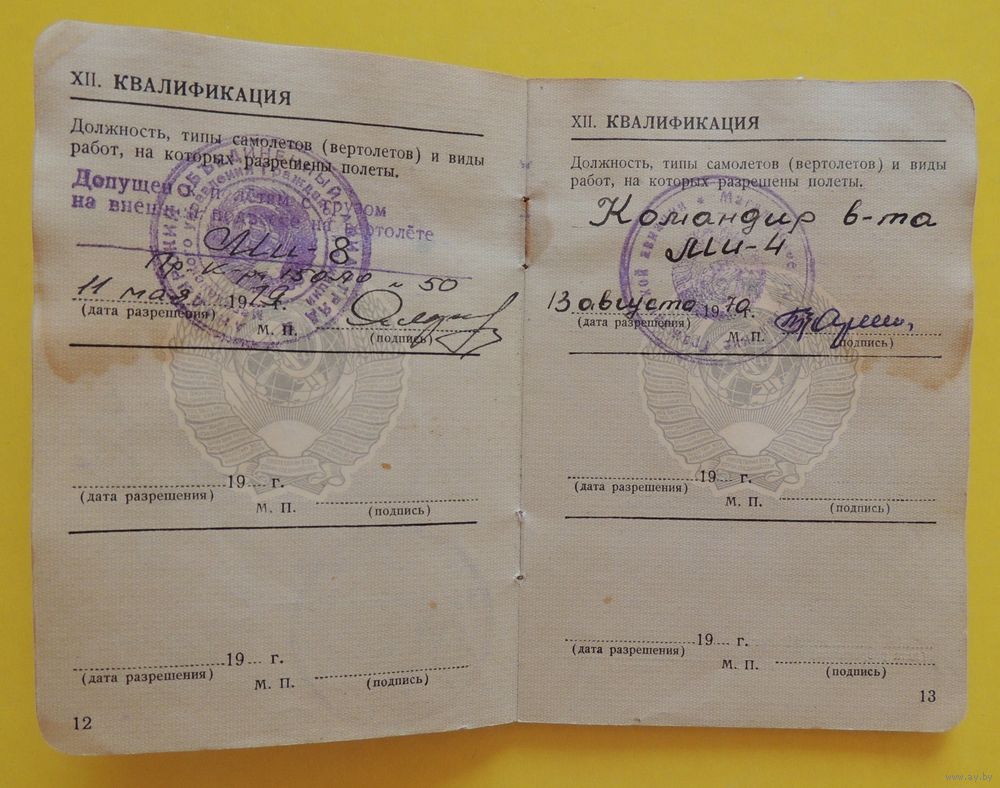 XII. КВАЛИФИКАЦИЯ
Должность, типы самолетов (вертолетов) и виды
работ, на которых разрешены полеты.
Допущен к полётам с грузом
на внешней подвеске на вертолёте
Ми-8
Пр. № 50
11 мая 1979 г.
(дата разрешения)
М. П.
(подпись)
19 г.
(дата разрешения)
М. П.
(подпись)
19 г.
(дата разрешения)
М. П.
(подпись)
12
XII. КВАЛИФИКАЦИЯ
Должность, типы самолетов (вертолетов) и виды
работ, на которых разрешены полеты.
Командир в-та
Ми-4
13 августа 1970 г.
(дата разрешения)
М. П.
(подпись)
19 г.
(дата разрешения)
М. П.
(подпись)
19 г.
(дата разрешения)
М. П.
(подпись)
13
www.ay.by